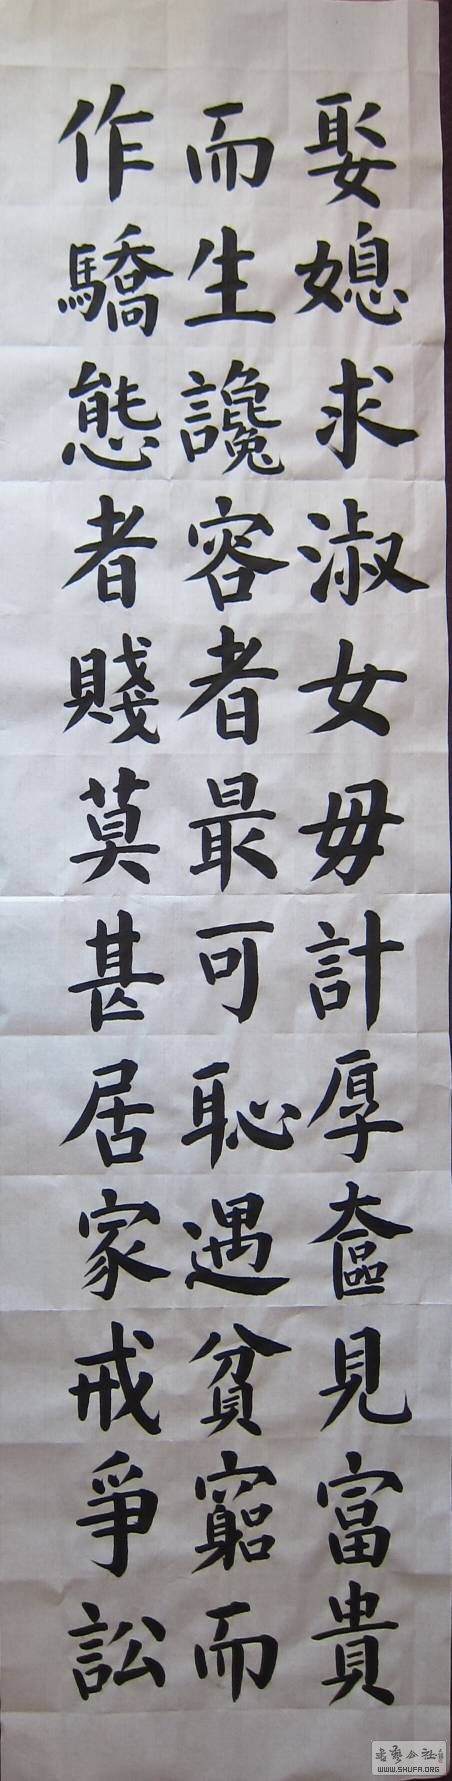 娶媳求淑女毋計厚奩見富貴
而生讒容者最可恥遇貧窮而
作驕態者賤莫甚居家戒爭訟
書艺公社
WWW.SHUFA.ORG